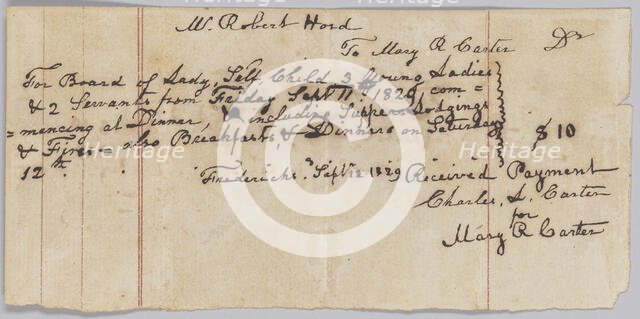 Mr. Robert Hord
To Mary R Carter Dr
For Board of Lady, Self, Child 3 Young Ladies
& 2 Servants from Friday Sept 11th 1829, com=
=mencing at Dinner, & including Suppers Lodgings
& Fires also Breakfasts, & Dinners on Saturday $10
12th.
Fredericksg. Sept 12 1829 Received Payment
Charles, L. Carter
for
Mary R Carter
Heritage Heritage